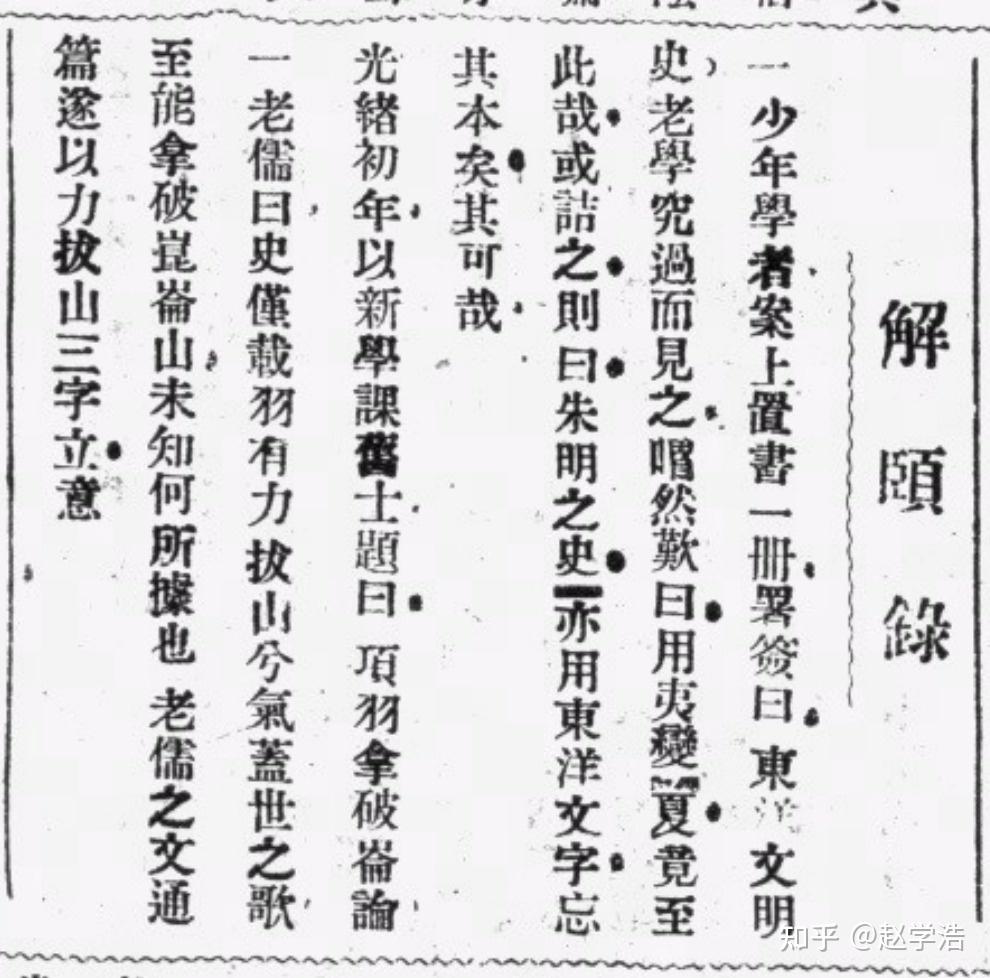 解頤錄
一少年學者案上置書一冊署簽曰東洋文明
史老學究過而見之喟然歎曰用夷變夏竟至
此哉或詰之則曰朱明之史亦用東洋文字忘
其本矣其可哉
光緒初年以新學課舊士題曰項羽拿破崙論
一老儒曰史僅載羽有力拔山兮氣蓋世之歌
至能拿破崑崙山未知何所據也老儒之文通
篇遂以力拔山三字立意
知乎 @赵学浩